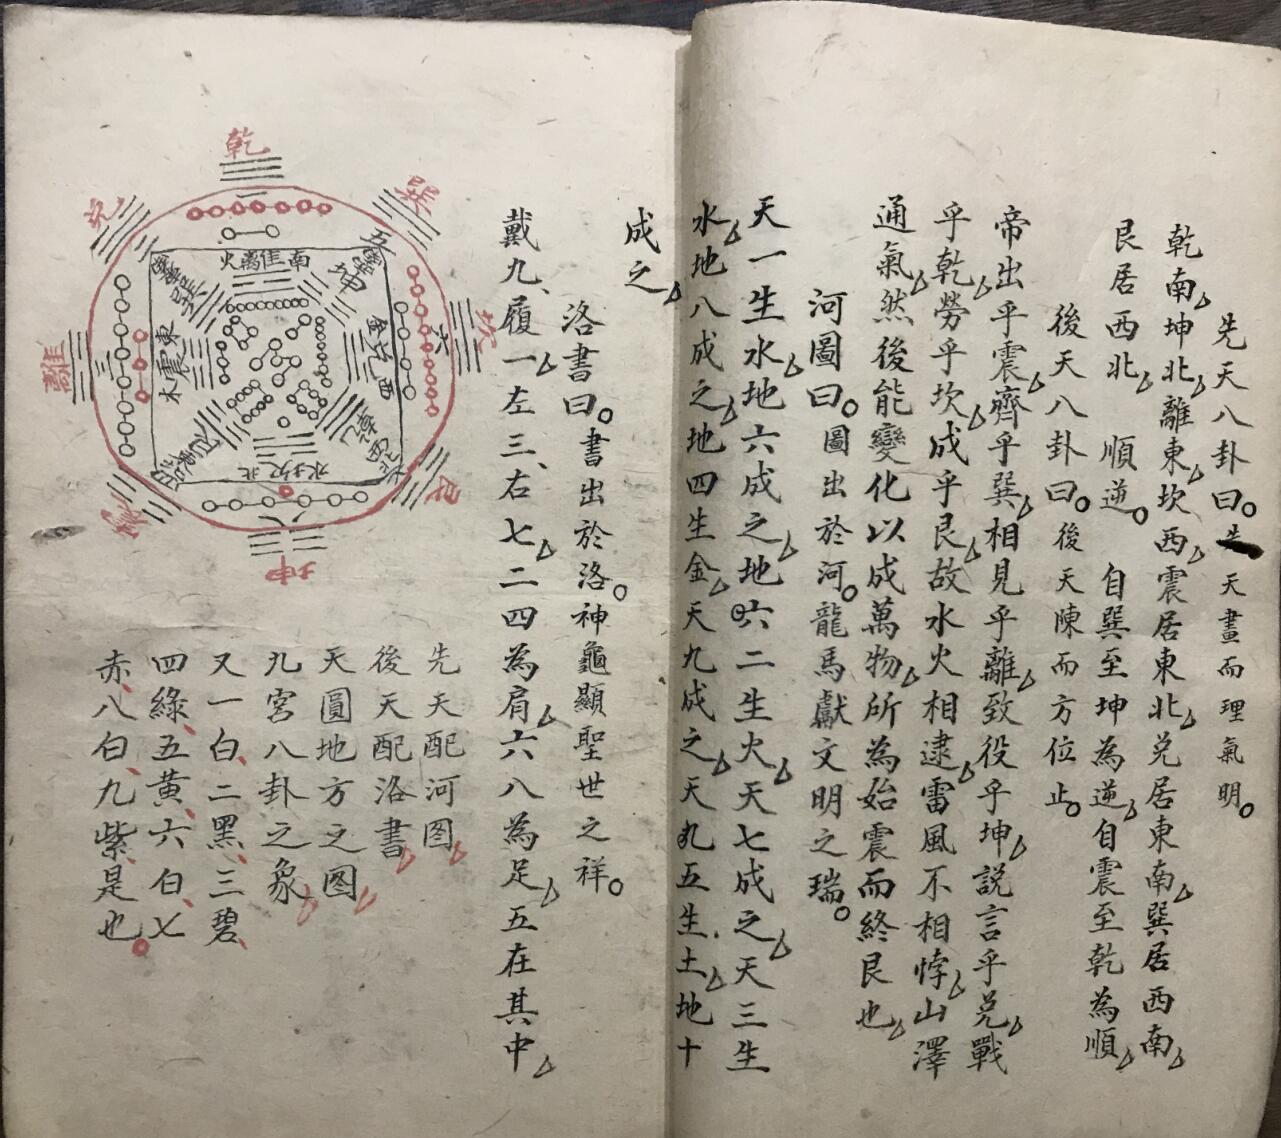 先天八卦曰。先天畫而理氣明。
乾南坤北離東坎西震居東北兌居東南巽居西南
艮居西北 順逆。 自巽至坤為逆自震至乾為順
後天八卦曰。後天陳而方位止。
帝出乎震齊乎巽相見乎離致役乎坤說言乎兌戰
乎乾勞乎坎成乎艮故水火相逮雷風不相悖山澤
通氣然後能變化以成萬物所為始震而終艮也
河圖曰。圖出於河。龍馬獻文明之瑞。
天一生水地六成之地六二生火天七成之天三生
水地八成之地四生金天九成之天九五生土地十
成之
洛書曰。書出於洛。神龜顯聖世之祥。
戴九、履一左三、右七二四為肩六八為足五在其中
先天配河图
後天配洛書
天圓地方之图
九宮八卦之象
又一白、二黑、三碧、
四綠、五黃、六白、七
赤、八白、九紫、是也。
乾
巽
坎
艮
坤
震
離
兌
南離火
西兌金
北坎水
東震木